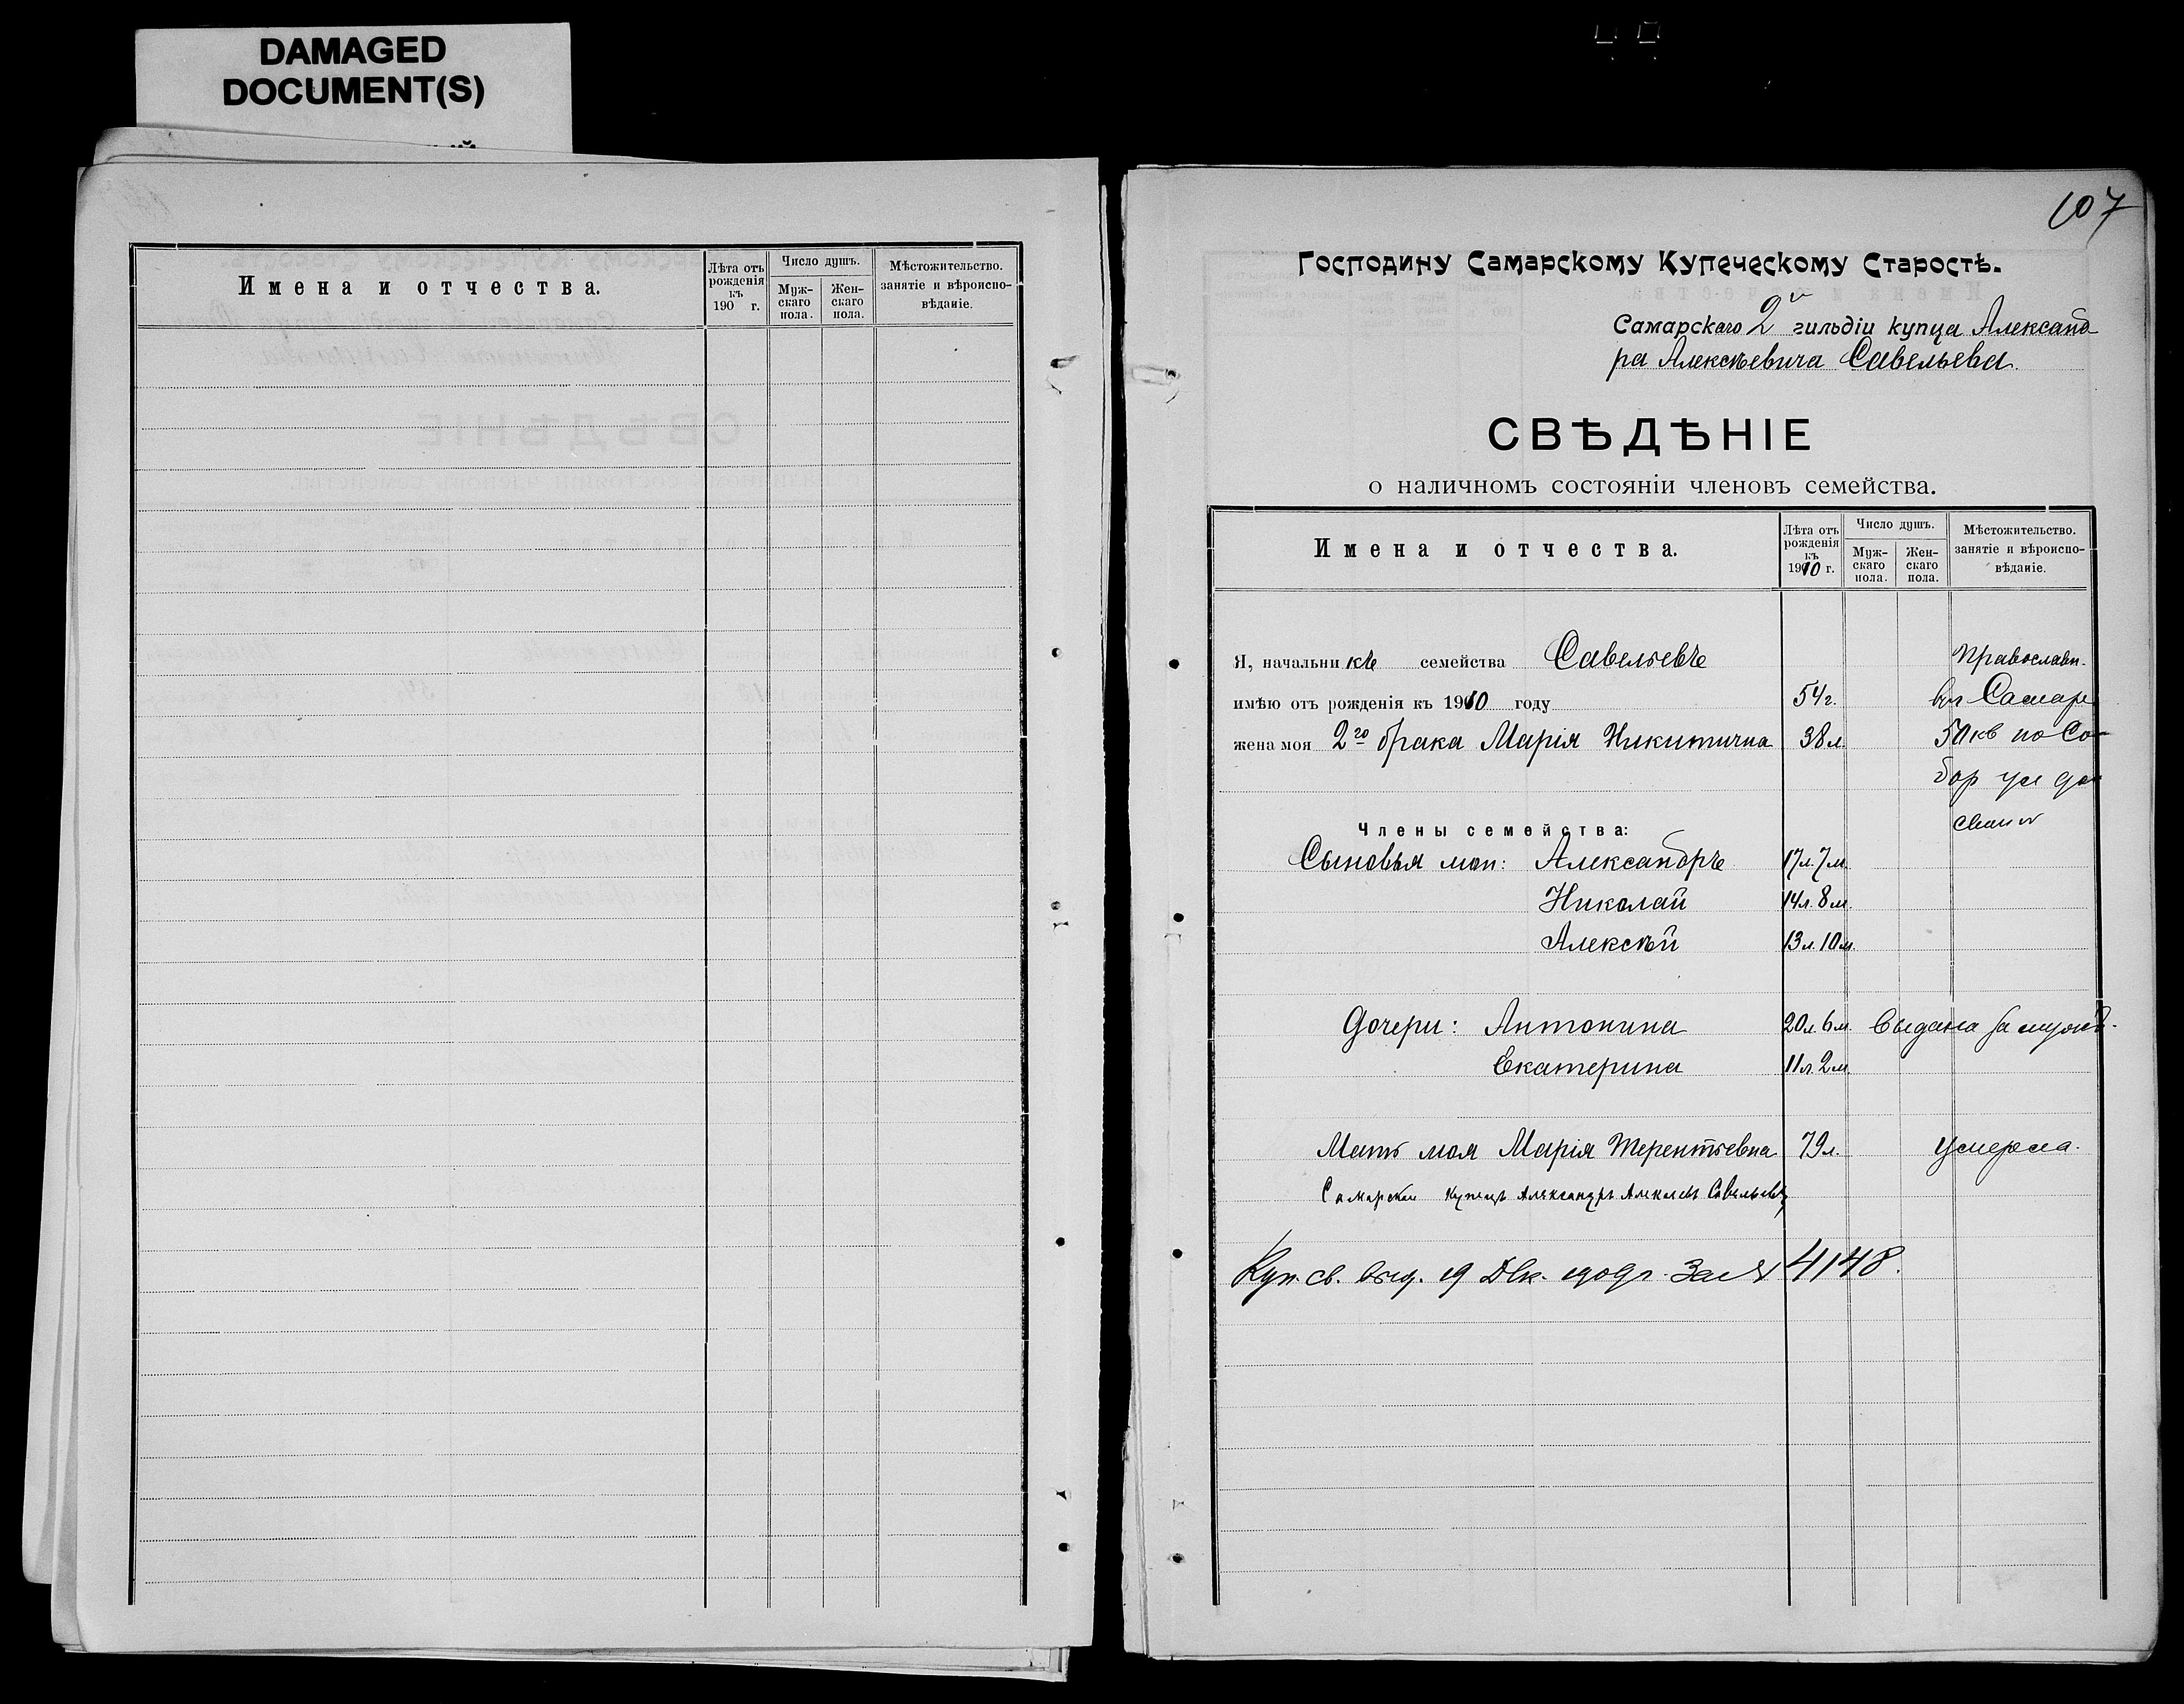 DAMAGED
DOCUMENT(S)
Имена и отчества.
Лѣта отъ рожденія къ 190 г.
Число душъ.
Мужскаго пола.
Женскаго пола.
Мѣстожительство. занятіе и вѣроисповѣданіе.
107
Господину Самарскому Купеческому Старостѣ.
Самарскаго 2й гильдіи купца Александ
ра Алексѣевича Савельева.
СВѢДѢНІЕ
о наличномъ состояніи членовъ семейства.
Имена и отчества.
Лѣта отъ рожденія къ 1910 г.
Число душъ.
Мужскаго пола.
Женскаго пола.
Мѣстожительство. занятіе и вѣроисповѣданіе.
Я, начальникъ семейства Савельевъ Православн.
имѣю отъ рожденія къ 1910 году 54 г. въ Самарѣ
жена моя 2го брака Марія Никитична 38 л. 50 кв по Со
бор ул до
Члены семейства:
Сыновья мои: Александръ 17 л. 7 м.
Николай 14 л. 8 м.
Алексѣй 13 л. 10 м.
Дочери: Антонина 20 л. 6 м. Выдана замужъ.
Екатерина 11 л. 2 м.
Мать моя Марія Терентьевна 79 л. Умерла.
Самарски купецъ Александръ Алексѣев Савельевъ
Куп. св. выд. 19 Дек. 1909 г. За № 4148.